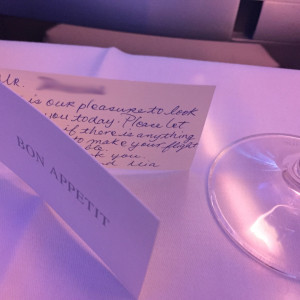 Mr.
is our pleasure to look
you today. Please let
if there is anything
to make your flight
you.
BON APPETIT